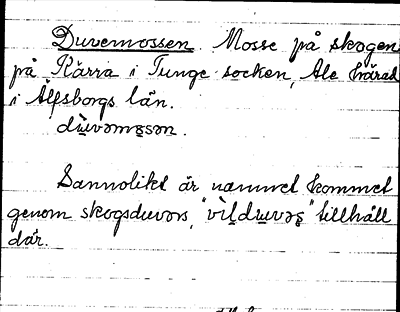 Duvemossen. Mosse på skogen
på Kärra i Tunge socken, Ale härad
i Älfsborgs län.
dùvəmɔsən.
Sannolikt är namnet kommet
genom skogsduvors, "vìlduvəs" tillhåll
där.